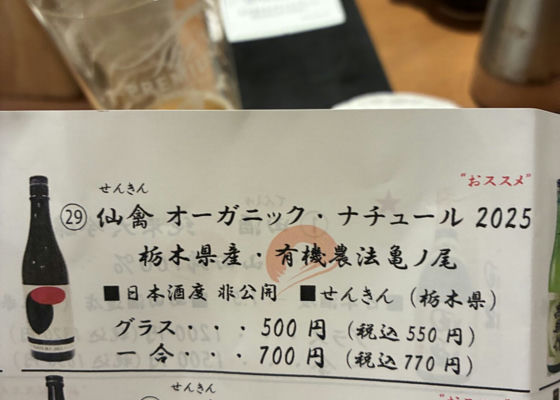 PREMIU
"おススメ"
せんきん
㉙ 仙禽 オーガニック・ナチュール 2025
栃木県産・有機農法亀ノ尾
■日本酒度 非公開 ■せんきん（栃木県）
グラス・・・500円（税込550円）
一合・・・700円（税込770円）
せんきん